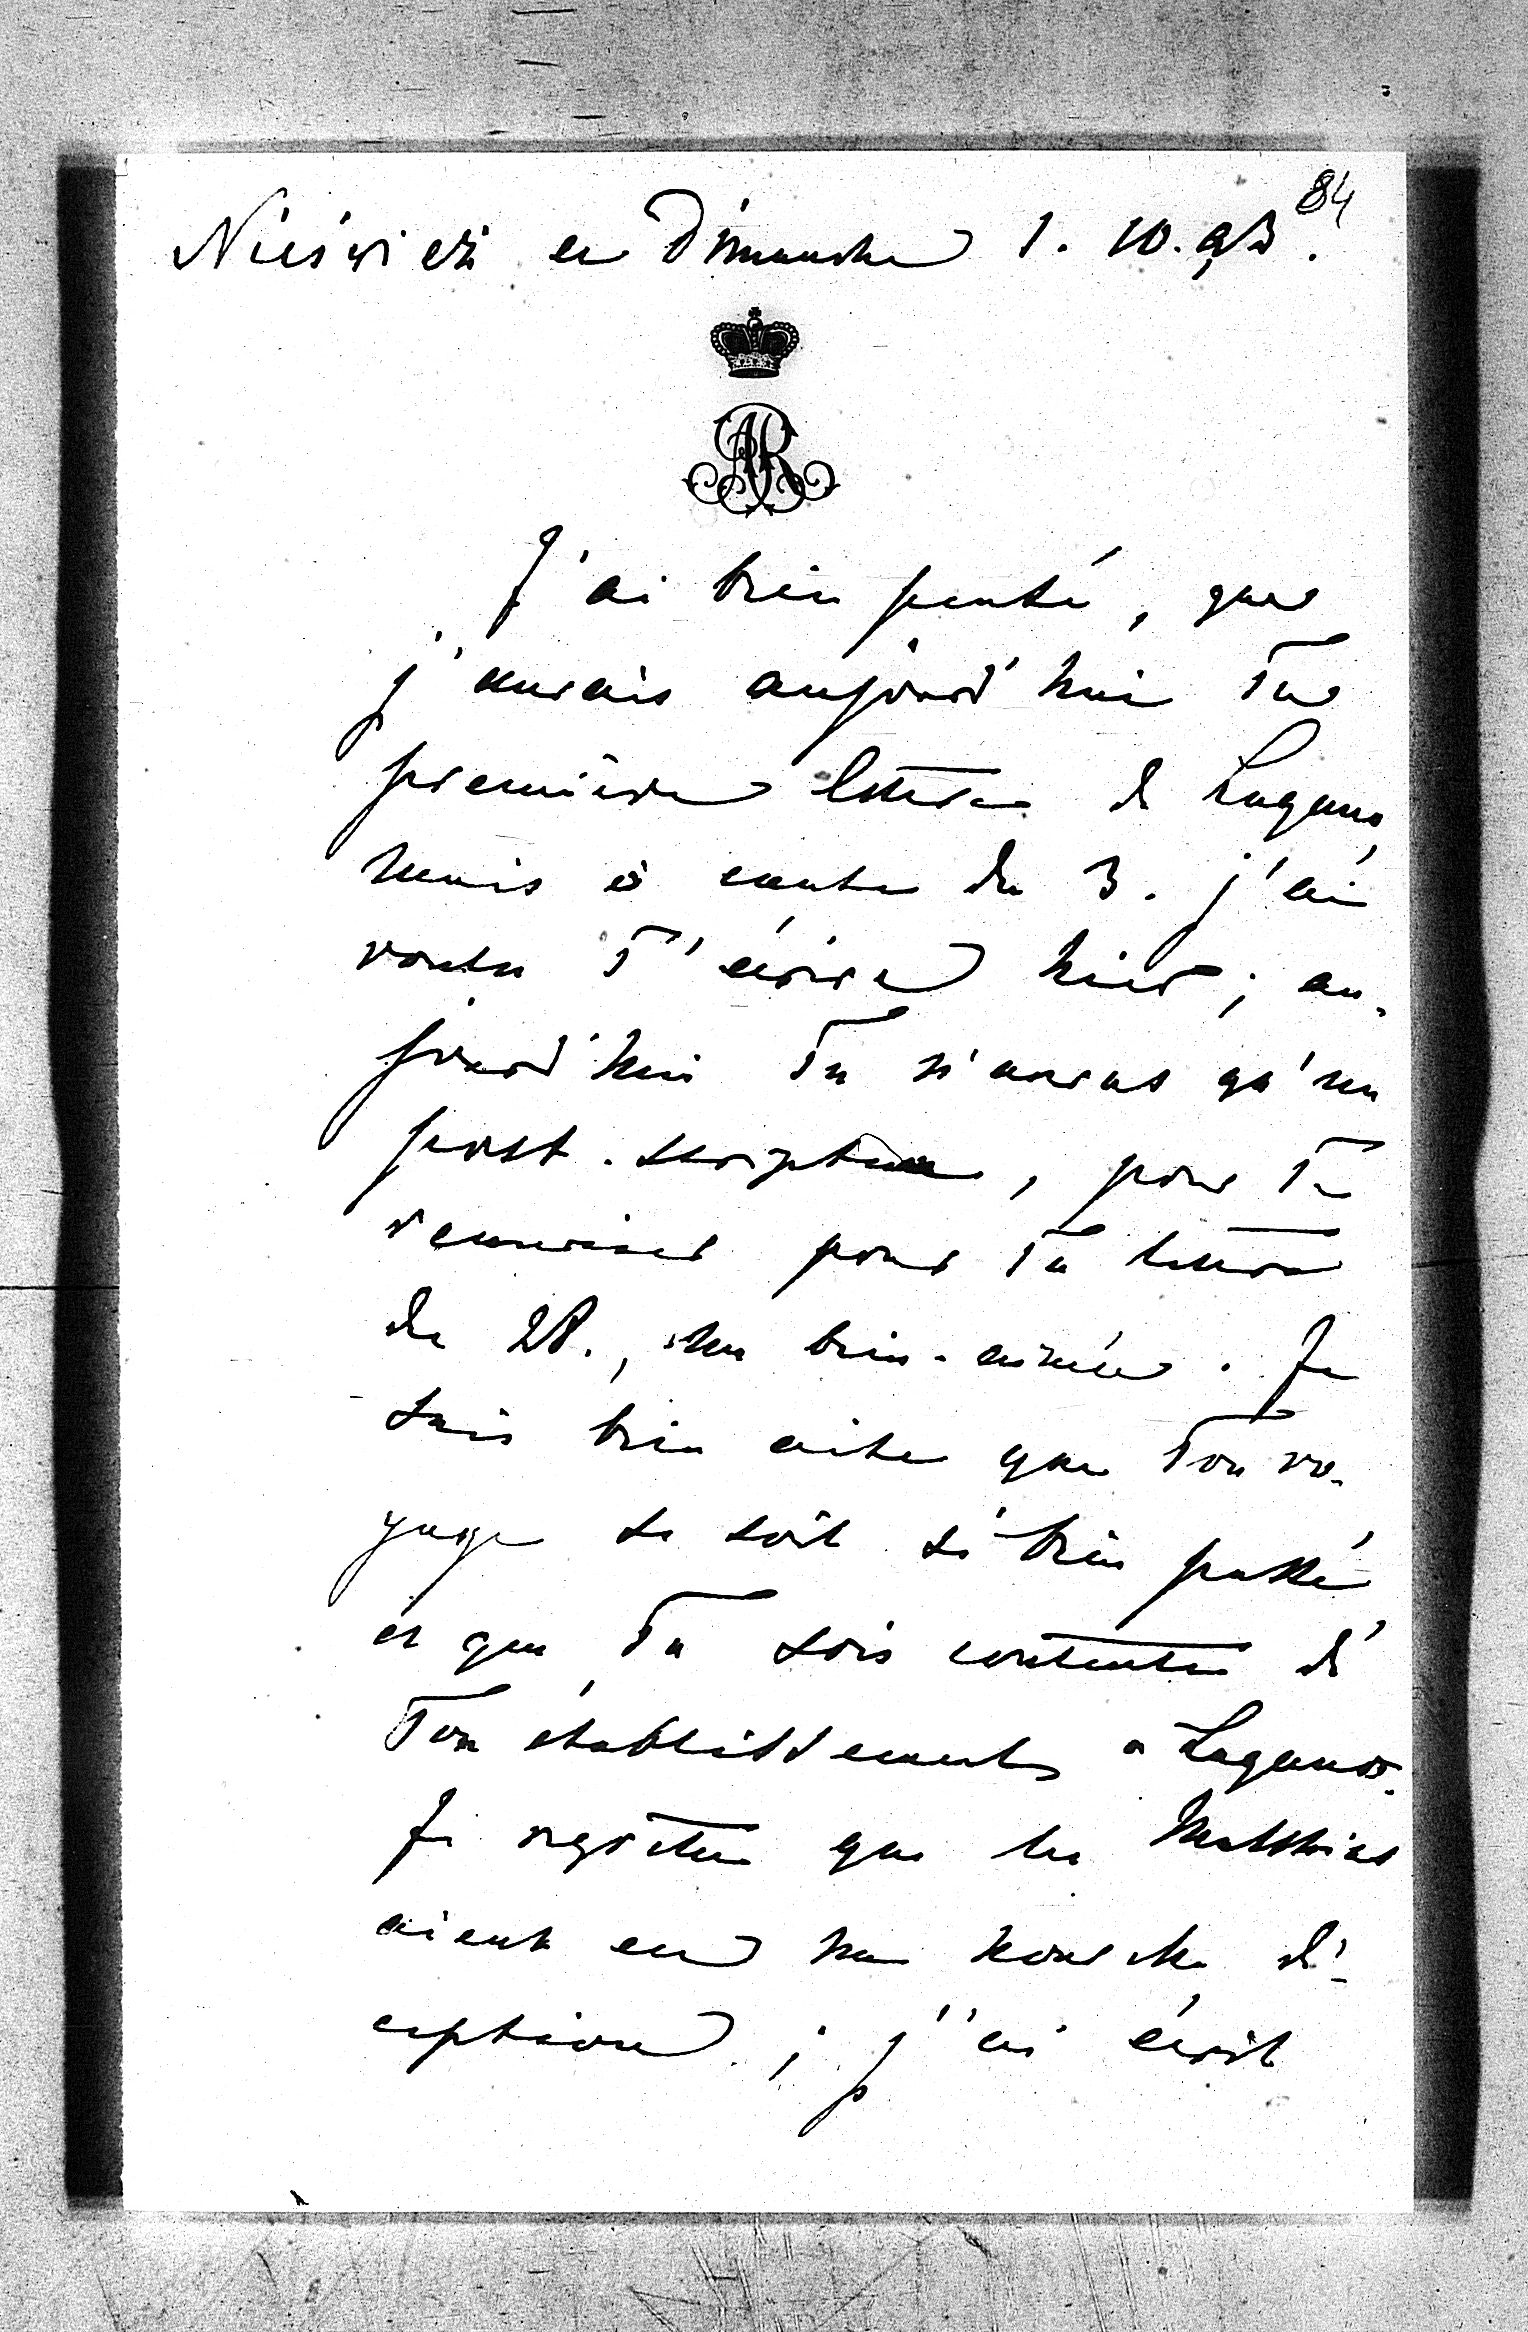 84
Nieśwież ce Dimanche 1. 10. 93.
AR
J'ai bien pensé, que
j'aurais aujourd'hui Ta
première lettre de Lugano,
mais à cause du 3. j'ai
voulu T'écrire hier; au-
jourd'hui Tu n'auras qu'un
post-scriptum, pour Te
remercier pour Ta lettre
du 28., ma bien-aimée. Je
suis bien aise que Ton vo-
yage se soit si bien passé
et que Tu sois contente de
Ton établissement a Lugano.
Je regrette que les Matthias
aient eu une nouvelle dé-
ception; j'ai écrit